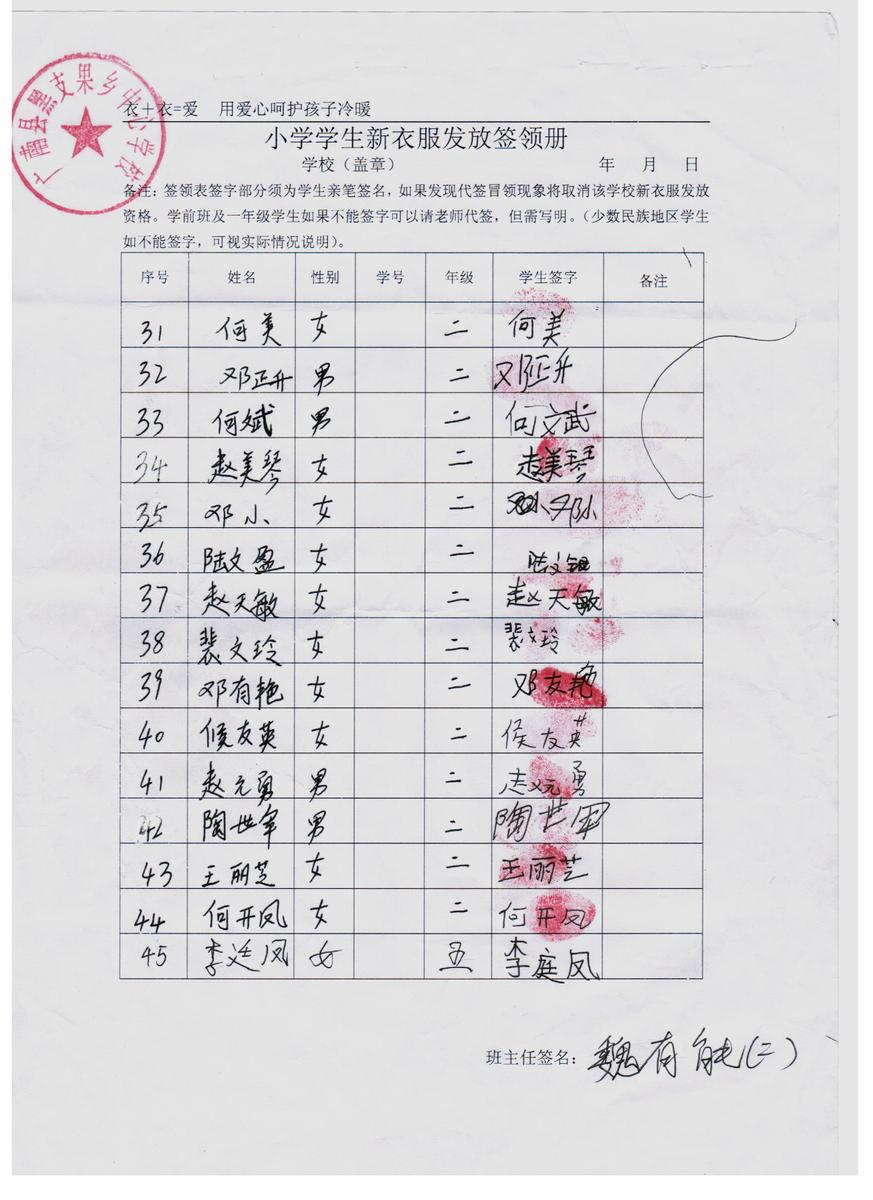 广南县黑支果乡中心学校
衣＋衣=爱 用爱心呵护孩子冷暖
小学学生新衣服发放签领册
学校（盖章） 年 月 日
备注：签领表签字部分须为学生亲笔签名，如果发现代签冒领现象将取消该学校新衣服发放
资格。学前班及一年级学生如果不能签字可以请老师代签，但需写明。（少数民族地区学生
如不能签字，可视实际情况说明）。
序号 姓名 性别 学号 年级 学生签字 备注
31 何美 女 二 何美
32 邓正升 男 二 邓正升
33 何斌 男 二 何文武
34 赵美琴 女 二 赵美琴
35 邓小 女 二 邓小
36 陆文盈 女 二 陆文
37 赵天敏 女 二 赵天敏
38 裴文玲 女 二 裴文玲
39 邓有艳 女 二 邓友艳
40 候友英 女 二 侯友英
41 赵元勇 男 二 元勇
42 陶世军 男 二 陶世军
43 王丽芝 女 二 王丽芝
44 何开凤 女 二 何开凤
45 李廷凤 女 五 李庭凤
班主任签名： 魏有能(二)